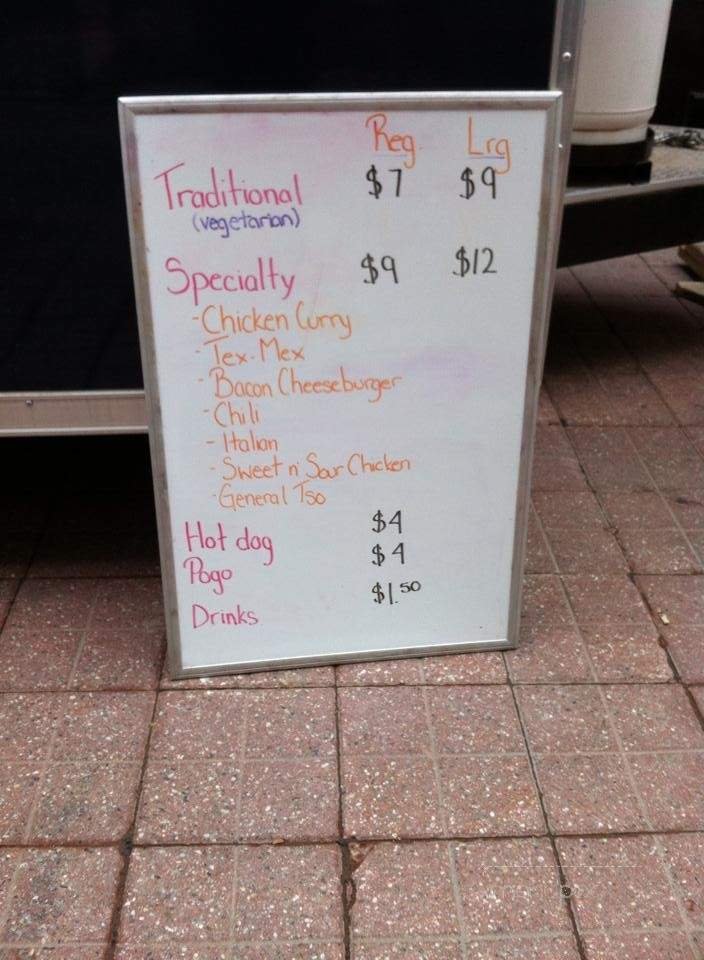 Reg. Lrg
Traditional $7 $9
(vegetarian)
Specialty $9 $12
- Chicken Curry
- Tex-Mex
- Bacon Cheeseburger
- Chili
- Italian
- Sweet n' Sour Chicken
- General Tso
Hot dog $4
Pogo $4
Drinks $1.50